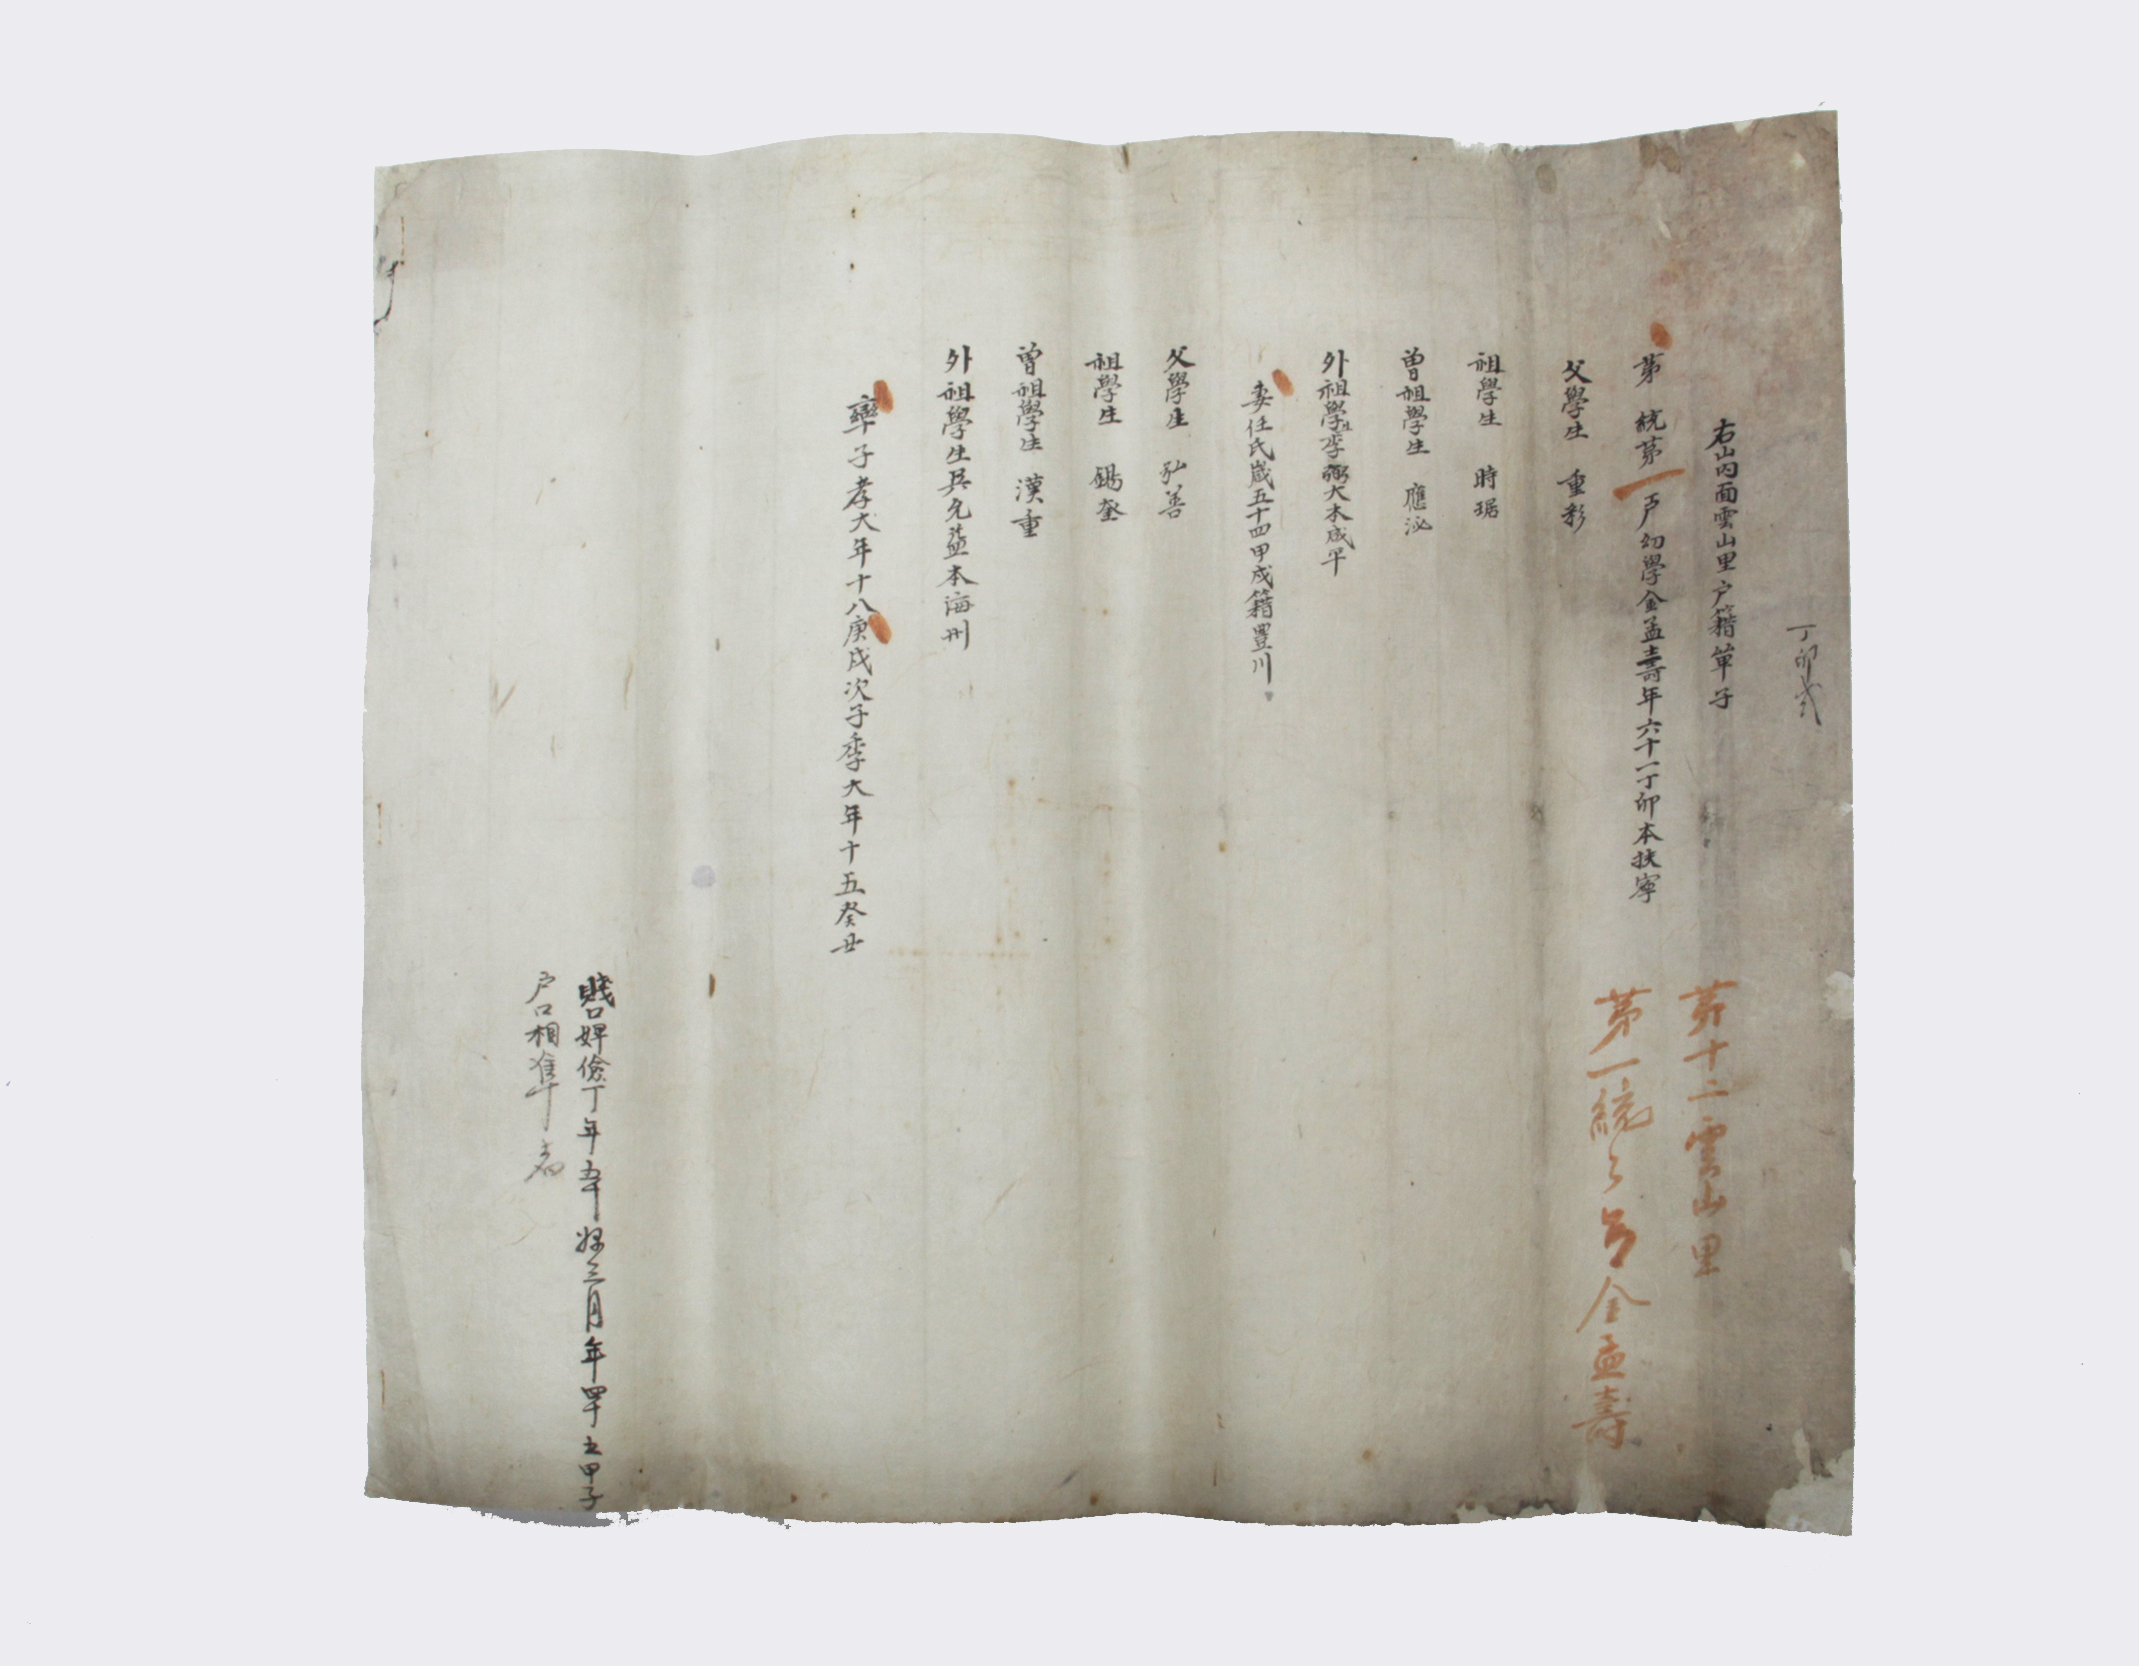 丁卯式
右山內面雲山里户籍單子
第十二雲山里
第 統第一戶幼學金孟壽年六十一丁卯本扶寧
第一統 金孟壽
父學生 重彩
祖學生 時琚
曾祖學生 應泌
外祖學生李 大本咸平
妻任氏歲五十四甲戌籍豊川
父學生 弘善
祖學生 錫奎
曾祖學生 漢重
外祖學生吳允益本海州
率子孝大年十八庚戌次子季大年十五癸丑
賤口婢儉丁年五十 婢三月年四十五甲子
户口相準者